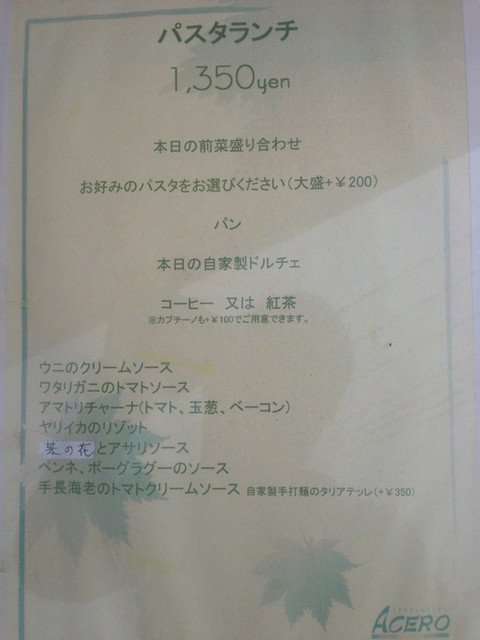 パスタランチ
1,350yen
本日の前菜盛り合わせ
お好みのパスタをお選びください(大盛+¥200)
パン
本日の自家製ドルチェ
コーヒー 又は 紅茶
※カプチーノも+¥100でご用意できます。
ウニのクリームソース
ワタリガニのトマトソース
アマトリチャーナ(トマト、玉葱、ベーコン)
ヤリイカのリゾット
菜の花とアサリソース
ペンネ、ポークラグーのソース
手長海老のトマトクリームソース 自家製手打麺のタリアテッレ(+¥350)
ACERO